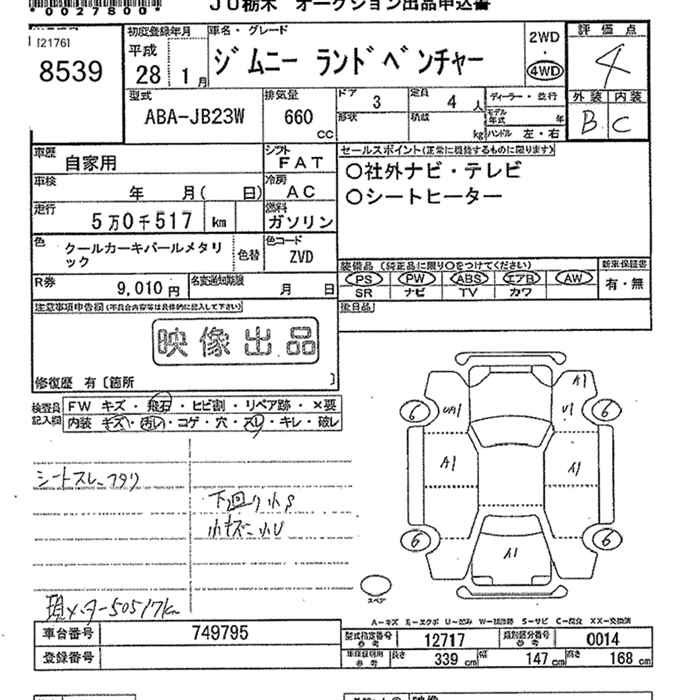 *0027800* JU栃木 オークション出品申込書
[2176]
8539
初度登録年月 平成 28年 1月
車名・グレード ジムニー ランドベンチャー
2WD・4WD
評価点 4
外装 B 内装 C
型式 ABA-JB23W
排気量 660 cc
ドア 3 定員 4人 ディーラー・並行
形状 積載 kg モデル年式 年
ハンドル 左・右
車歴 自家用
シフト FAT
セールスポイント(正常に機能するものに限ります)
○社外ナビ・テレビ
○シートヒーター
車検 年 月( 日)
冷房 AC
走行 5万0千517 km
燃料 ガソリン
色 クールカーキパールメタリック
色替
色コード ZVD
装備品(純正品に限り○をつけてください)
PS PW ABS エアB AW
SR ナビ TV カワ
新車保証書 有・無
R券 9,010円
名変通知期限 月 日
後日品
注意事項申告欄(不具合内容等は具体的に記入して下さい)
映像出品
修復歴 有[箇所 ]
検査員記入欄
FW キズ・飛石・ヒビ割・リペア跡・×要
内装 キズ・汚レ・コゲ・穴・スレ・キレ・破レ
シートスレ、フタリ
下回り小S
小キズ、小U
現メーター50517km
A1
UA1 U1
6 6
A1 A1
6 6
A1
スペア
A-キズ E-エクボ U-凹み W-補修跡 S-サビ C-腐食 XX-交換済
車台番号 749795
型式指定番号 参考 12717 類別区分番号 参考 0014
登録番号
車庫証明用 参考 長さ 339 cm 幅 147 cm 高さ 168 cm